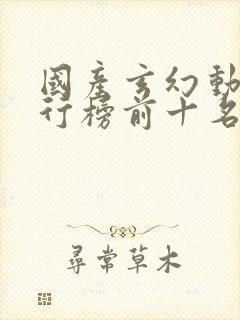 國產玄幻動
行榜前十名
尋常草木